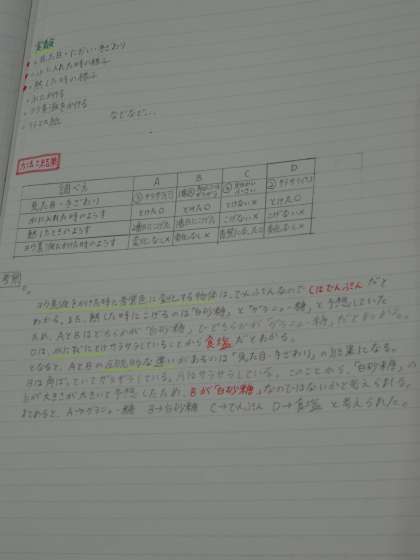 実験
・見た目・におい・手ざわり
・水に入れた時の様子
・熱した時の様子
・水にとける
・ヨウ素液をかける
・リトマス紙 などなど...
方法と結果
調べ方 A B C D
見た目・手ざわり ①サラサラ ③ ②サラサラ
水に入れた時のようす とけた○ とけた○ とけない× とけた○
熱したときのようす こげた こげた こげない× こげない×
ヨウ素液にかけた時のようす 変化なし× 変化なし× になった○ 変化なし×
考察
ヨウ素液をかけた時に青紫色に変化する物体は、でんぷんなのでCはでんぷんだと
わかる。また、熱した時にこげるのは「白砂糖」と「グラニュー糖」と予想していた
ため、AとBはどちらかが「白砂糖」でどちらかが「グラニュー糖」だとわかる。
Dは、水にとけサラサラしていることから食塩だとわかる。
となると、AとBの違いがあるのは「見た目・手ざわり」の結果になる。
Bは角ばっていてザラザラしている。Aはサラサラしている。このことから、「白砂糖」の
方が大きさが大きいと予想したため、Bが「白砂糖」なのではないかと考えられる。
まとめると、A→グラニュー糖 B→白砂糖 C→でんぷん D→食塩 と考えられた。